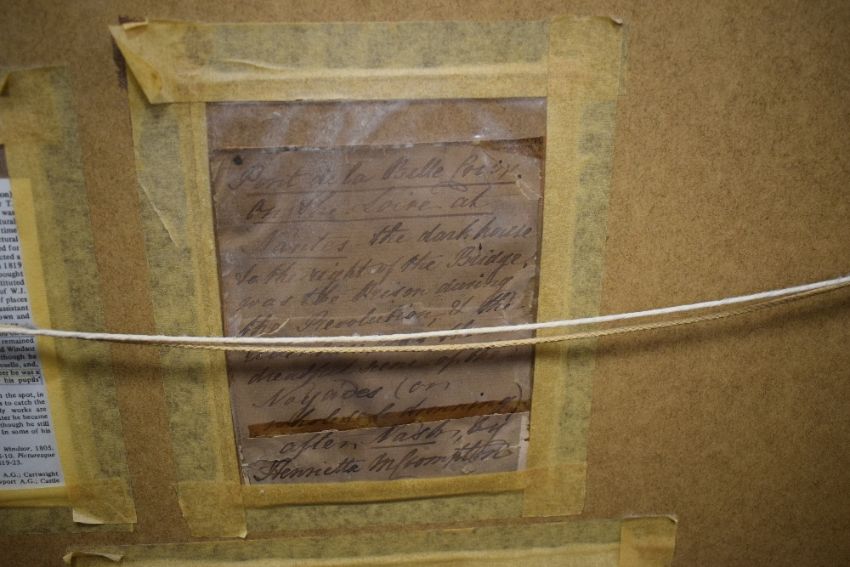 on)
r T.
was
tural
time
ctural
ed for
cted a
1819
bought
stituted
of W.J.
f places
assistant
own and
remained
d Windsor
though he
owells, and,
er he was a
his pupils'
the spot, in
s to catch the
ly works are
ter he became
though he still
in some of his
Windsor, 1805.
-10. Picturesque
19-23.
A.G.; Cartwright
port A.G.; Castle
Pont de la Belle Croix
On the Loire at
Nantes the dark house
to the right of the Bridge,
was the Prison during
the Revolution, & the
the
dreadful
Noyades (or
wholesale drowning)
after Nash, by
Henrietta M Crompton